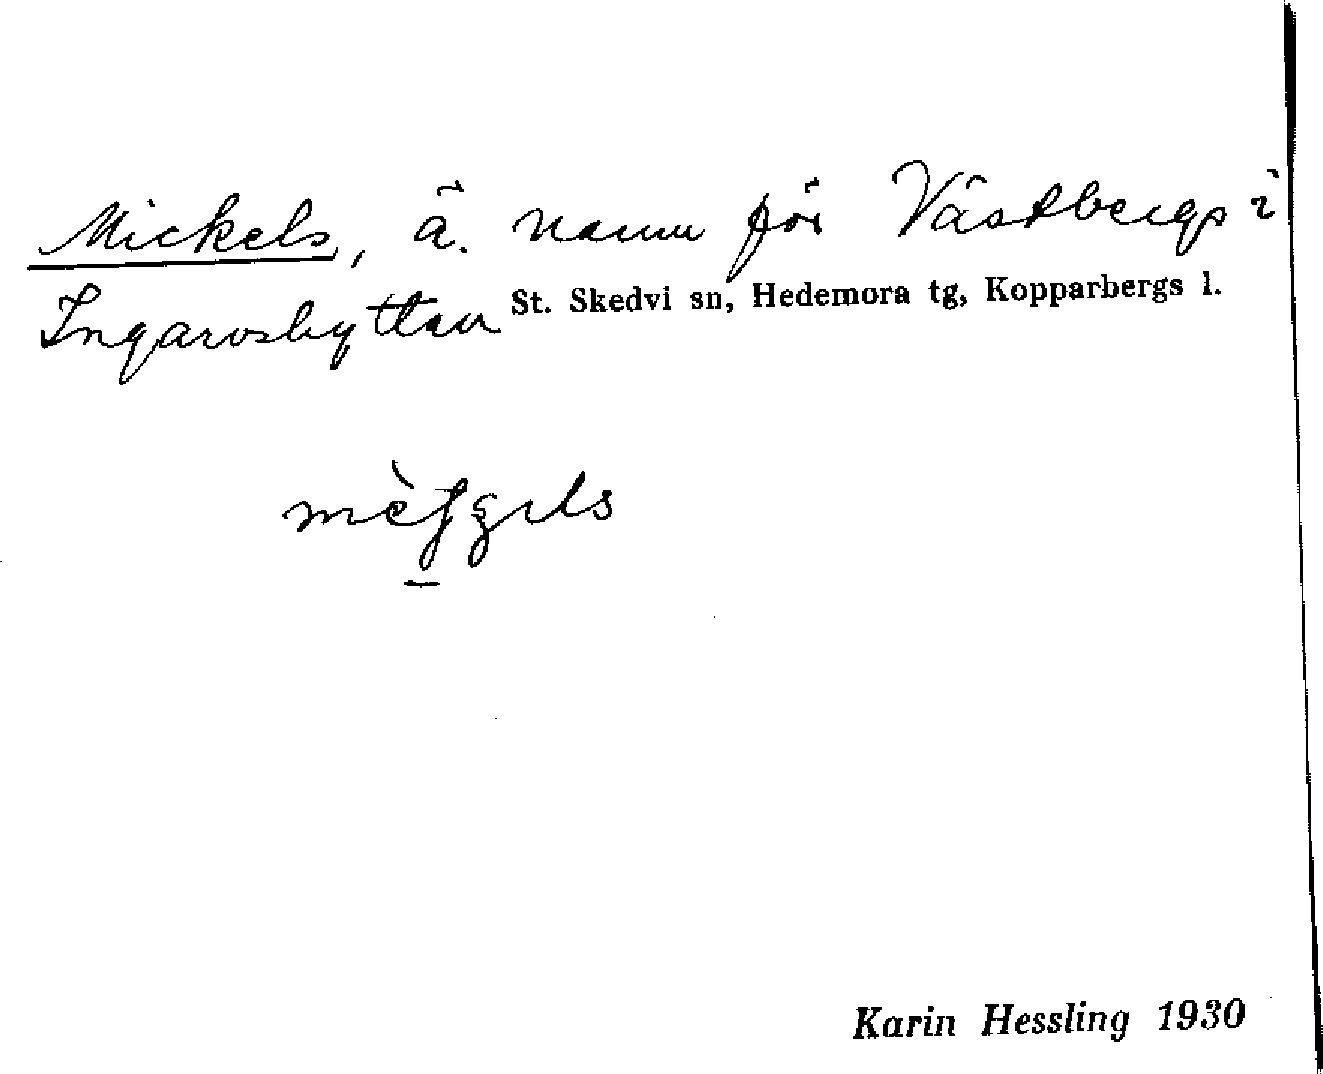 Mickels, ä. namn för Västbergs i
Ingarvshyttan St. Skedvi sn, Hedemora tg, Kopparbergs l.
Karin Hessling 1930